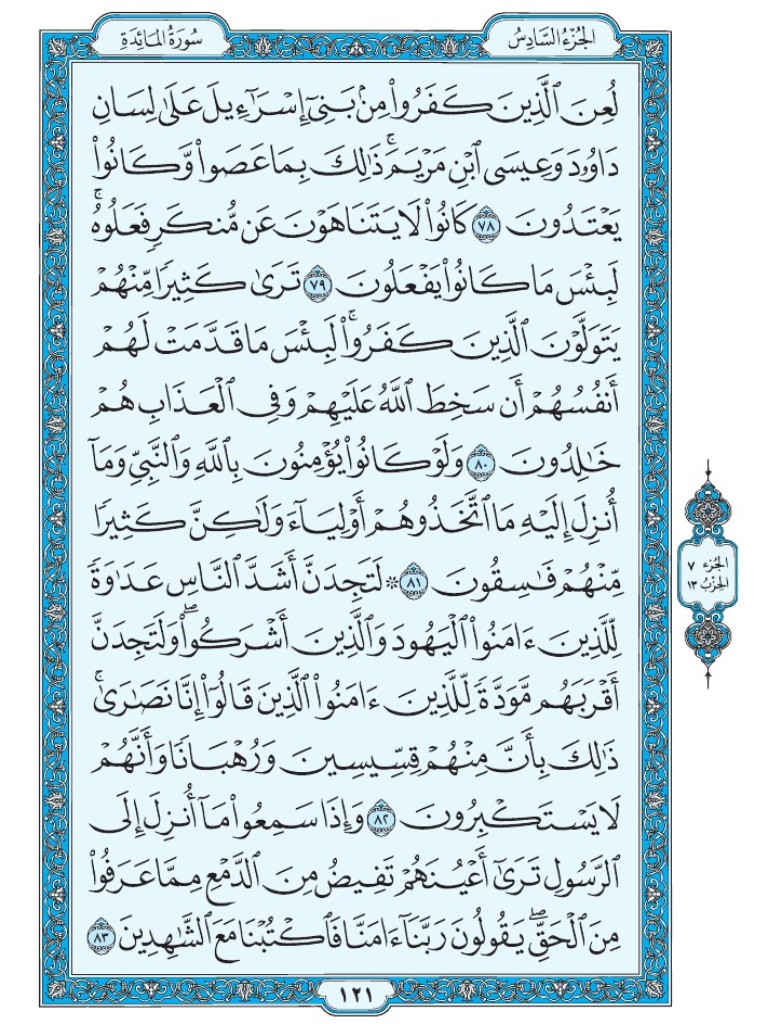 الجُزْءُ السَّادِسُ
سُورَةُ المَائِدَةِ
لُعِنَ ٱلَّذِينَ كَفَرُوا۟ مِنۢ بَنِىٓ إِسْرَٰٓءِيلَ عَلَىٰ لِسَانِ
دَاوُۥدَ وَعِيسَى ٱبْنِ مَرْيَمَ ۚ ذَٰلِكَ بِمَا عَصَوا۟ وَّكَانُوا۟
يَعْتَدُونَ ٧٨ كَانُوا۟ لَا يَتَنَاهَوْنَ عَن مُّنكَرٍ فَعَلُوهُ ۚ
لَبِئْسَ مَا كَانُوا۟ يَفْعَلُونَ ٧٩ تَرَىٰ كَثِيرًا مِّنْهُمْ
يَتَوَلَّوْنَ ٱلَّذِينَ كَفَرُوا۟ ۚ لَبِئْسَ مَا قَدَّمَتْ لَهُمْ
أَنفُسُهُمْ أَن سَخِطَ ٱللَّهُ عَلَيْهِمْ وَفِى ٱلْعَذَابِ هُمْ
خَٰلِدُونَ ٨٠ وَلَوْ كَانُوا۟ يُؤْمِنُونَ بِٱللَّهِ وَٱلنَّبِىِّ وَمَآ
أُنزِلَ إِلَيْهِ مَا ٱتَّخَذُوهُمْ أَوْلِيَآءَ وَلَٰكِنَّ كَثِيرًا
مِّنْهُمْ فَٰسِقُونَ ٨١ ۞ لَتَجِدَنَّ أَشَدَّ ٱلنَّاسِ عَدَٰوَةً
لِّلَّذِينَ ءَامَنُوا۟ ٱلْيَهُودَ وَٱلَّذِينَ أَشْرَكُوا۟ ۖ وَلَتَجِدَنَّ
أَقْرَبَهُم مَّوَدَّةً لِّلَّذِينَ ءَامَنُوا۟ ٱلَّذِينَ قَالُوٓا۟ إِنَّا نَصَٰرَىٰ ۚ
ذَٰلِكَ بِأَنَّ مِنْهُمْ قِسِّيسِينَ وَرُهْبَانًا وَأَنَّهُمْ
لَا يَسْتَكْبِرُونَ ٨٢ وَإِذَا سَمِعُوا۟ مَآ أُنزِلَ إِلَى
ٱلرَّسُولِ تَرَىٰٓ أَعْيُنَهُمْ تَفِيضُ مِنَ ٱلدَّمْعِ مِمَّا عَرَفُوا۟
مِنَ ٱلْحَقِّ ۖ يَقُولُونَ رَبَّنَآ ءَامَنَّا فَٱكْتُبْنَا مَعَ ٱلشَّٰهِدِينَ ٨٣
الجُزء ٧
الحِزبُ ١٣
١٢١